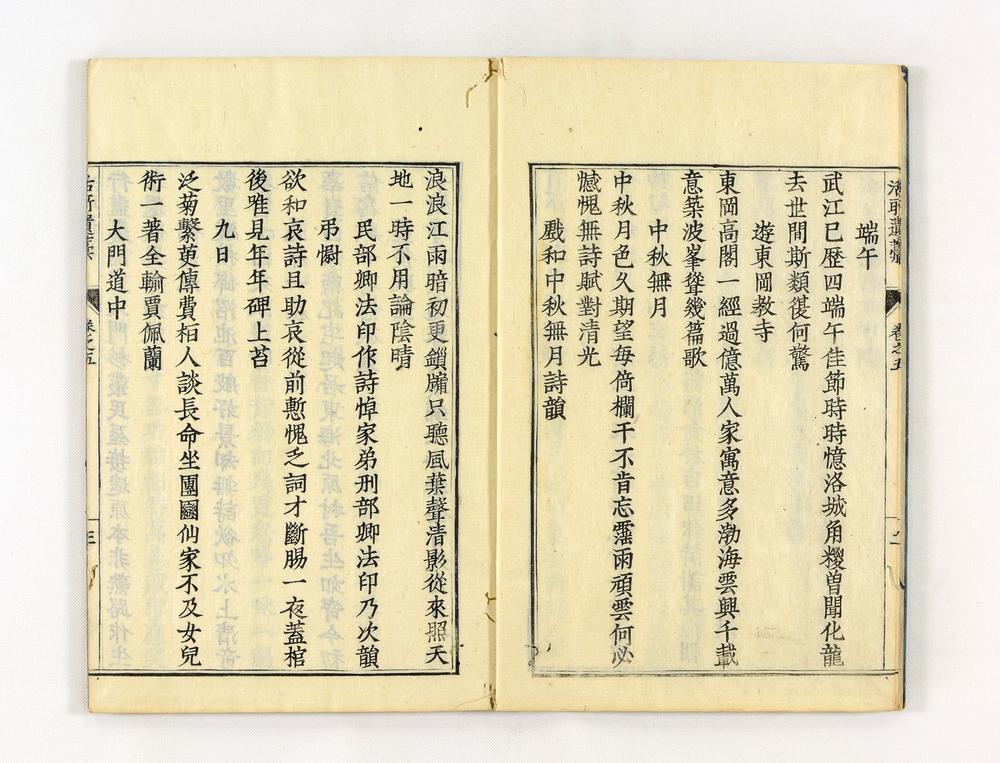 端午
武江已歷四端午佳節時時憶洛城角糉曽聞化龍
去世間斯類復何驚
遊東岡教寺
東岡高閣一經過億萬人家寓意多渤海雲興千載
意築波峯聳幾篇歌
中秋無月
中秋月色久期望每倚欄干不肯忘霪雨頑雲何必
憾愧無詩賦對清光
戲和中秋無月詩韻
卷之五
二
浪浪江雨暗初更鎻牖只聽風葉聲清影從來照天
地一時不用論陰晴
民部卿法印作詩悼家弟刑部卿法印乃次韻
弔慰
欲和哀詩且助哀從前慙愧乏詞才斷腸一夜蓋棺
後唯見年年碑上苔
九日
泛菊繫萸傳費桓人談長命坐團圝仙家不及女兒
術一著全輸賈佩蘭
大門道中
卷之五
三